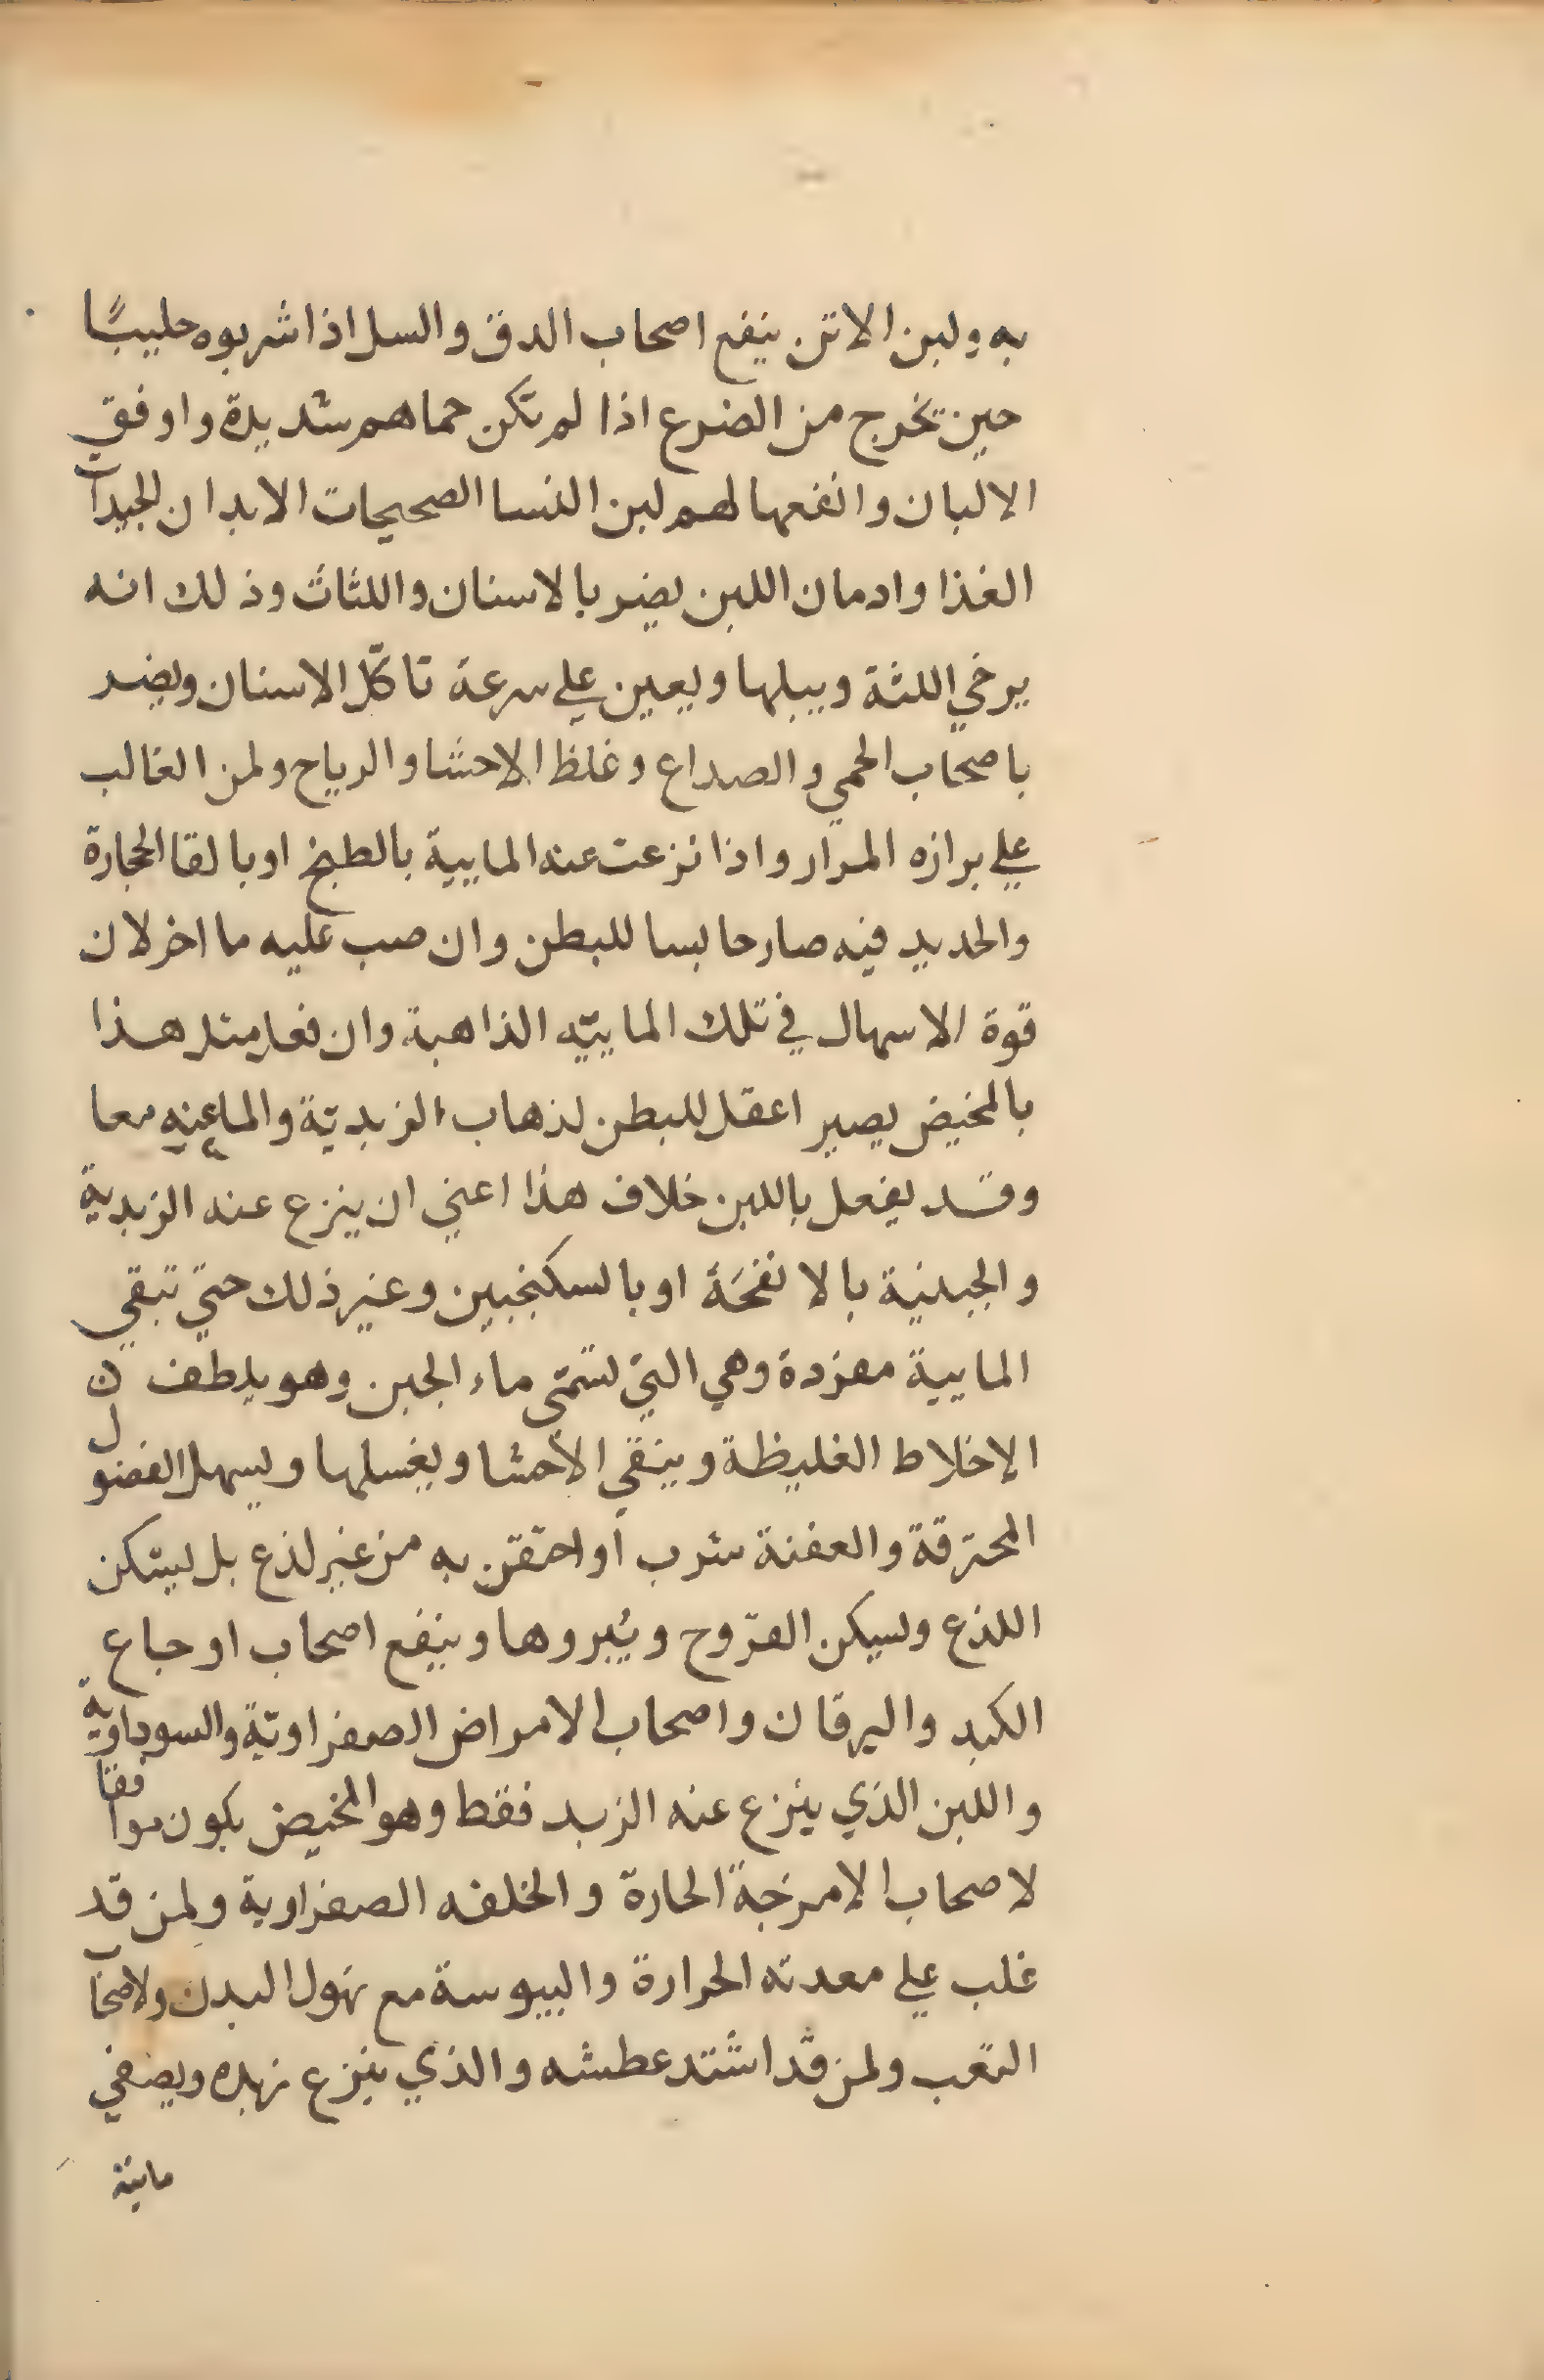 به ولبن الاتن ينفع اصحاب الدق والسل اذا شربوه حليبًا
حين تخرج من الضرع اذا لم تكن حماهم شديدة واوفق
الالبان وانفعها لهم لبن النسا الصحيحات الابدان الجيدات
الغذا وادمان اللبن يضر بالاسنان واللثاث وذلك انه
يرخي اللثة ويبلها ويعين علي سرعة تاكّل الاسنان ويضر
باصحاب الحمي والصداع وغلظ الاحشا والرياح ولمن الغالب
علي برازه المرار واذا نزعت عنه المايية بالطبخ اوبالقا الحجارة
والحديد فيه صار حابسا للبطن وان صب عليه ما اخر لان
قوة الاسهال في تلك الماييّه الذاهبة وان فعل مثل هذا
بالمخيض يصير اعقل للبطن لذهاب الزبديّة والما عنه معا
وقد يفعل باللبن خلاف هذا اعني ان ينزع عنه الزبدية
والجبنية بالانفحَة اوبالسكنجبين وغير ذلك حتي تبقي
المايية مفردة وهي التي تسمّى ماء الجبن وهو يلطف ن
الاخلاط الغليظة وينقي الاحشا ويغسلها ويسهل الفضول
المحترقة والعفنة شرب أو احتقن به من غير لذع بل يسكن
اللذع ويسكن القروح ويُبروها وينفع اصحاب اوجاع
الكبد واليرقان واصحاب الامراض الصفراويّة والسوداوية
واللبن الذي ينزع عنه الزبد فقط وهو المخيض يكون موافقا
لاصحاب الامزجة الحارة والخلفه الصفراوية ولمن قد
غلب علي معدته الحرارة واليبوسة مع نهول البدن ولاصحاب
التعب ولمن قد اشتد عطشه والذي ينزع زبده ويصفي
مايية